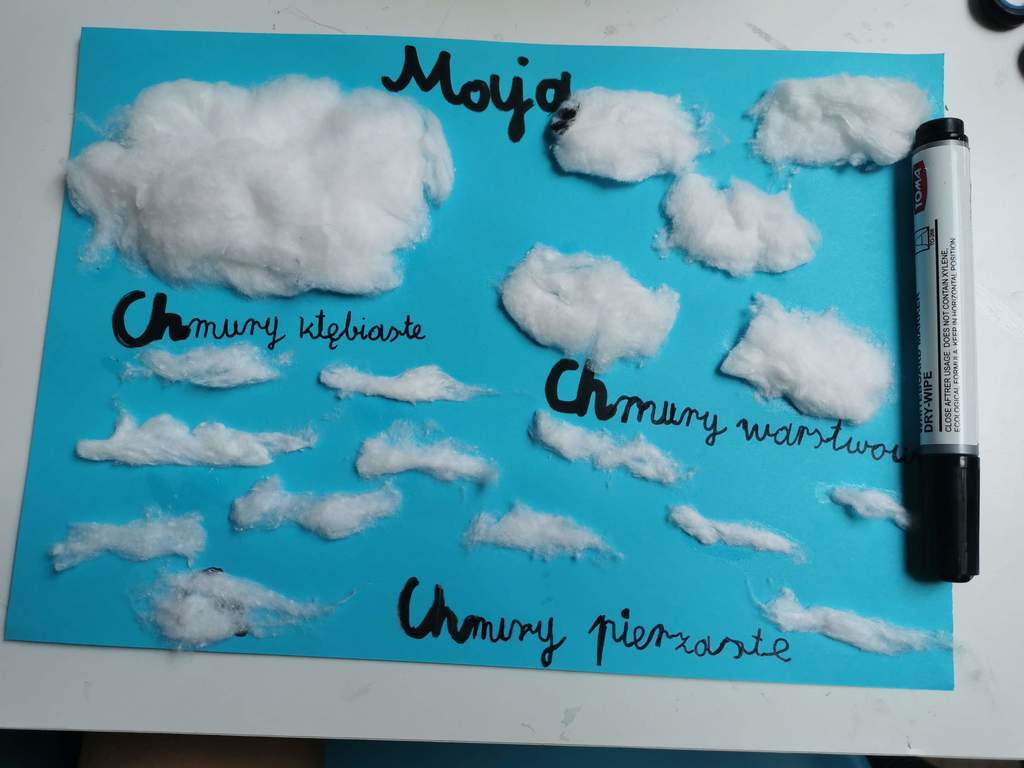 Maja
Chmury kłębiaste
Chmury warstwow
Chmury pierzaste
TOMA
DRY-WIPE
CLOSE AFTRER USAGE. DOES NOT CONTAIN XYLENE,
ECOLOGICAL FORMULA. KEEP IN HORIZONTAL POSITION